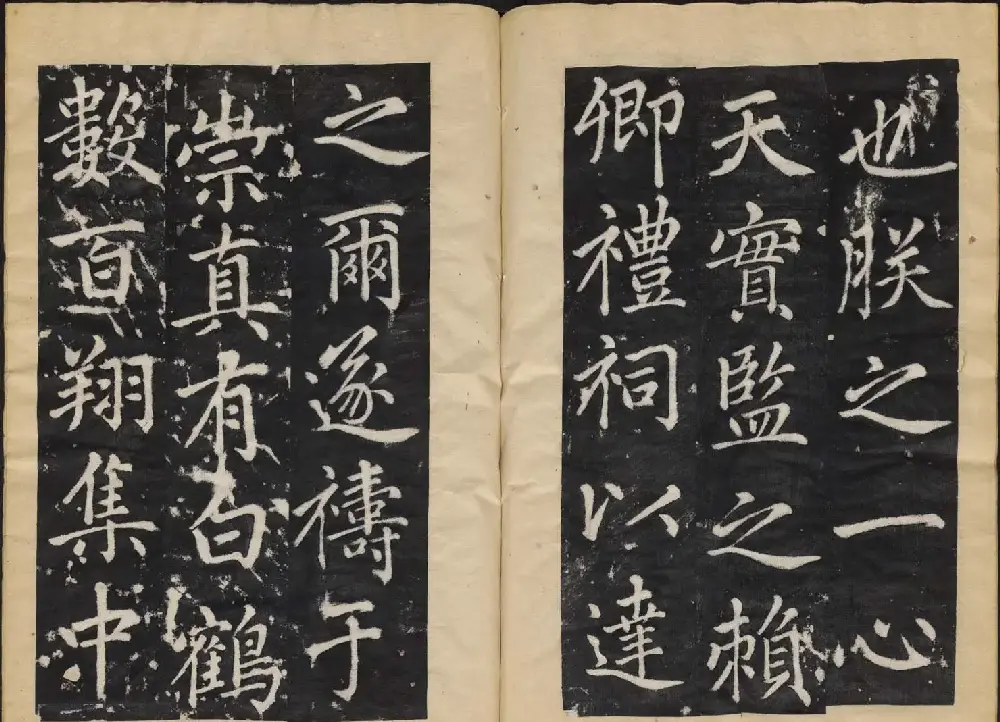 也朕之一心
天實監之賴
卿禮祠以達
之爾遂禱于
崇真有白鶴
數百翔集中